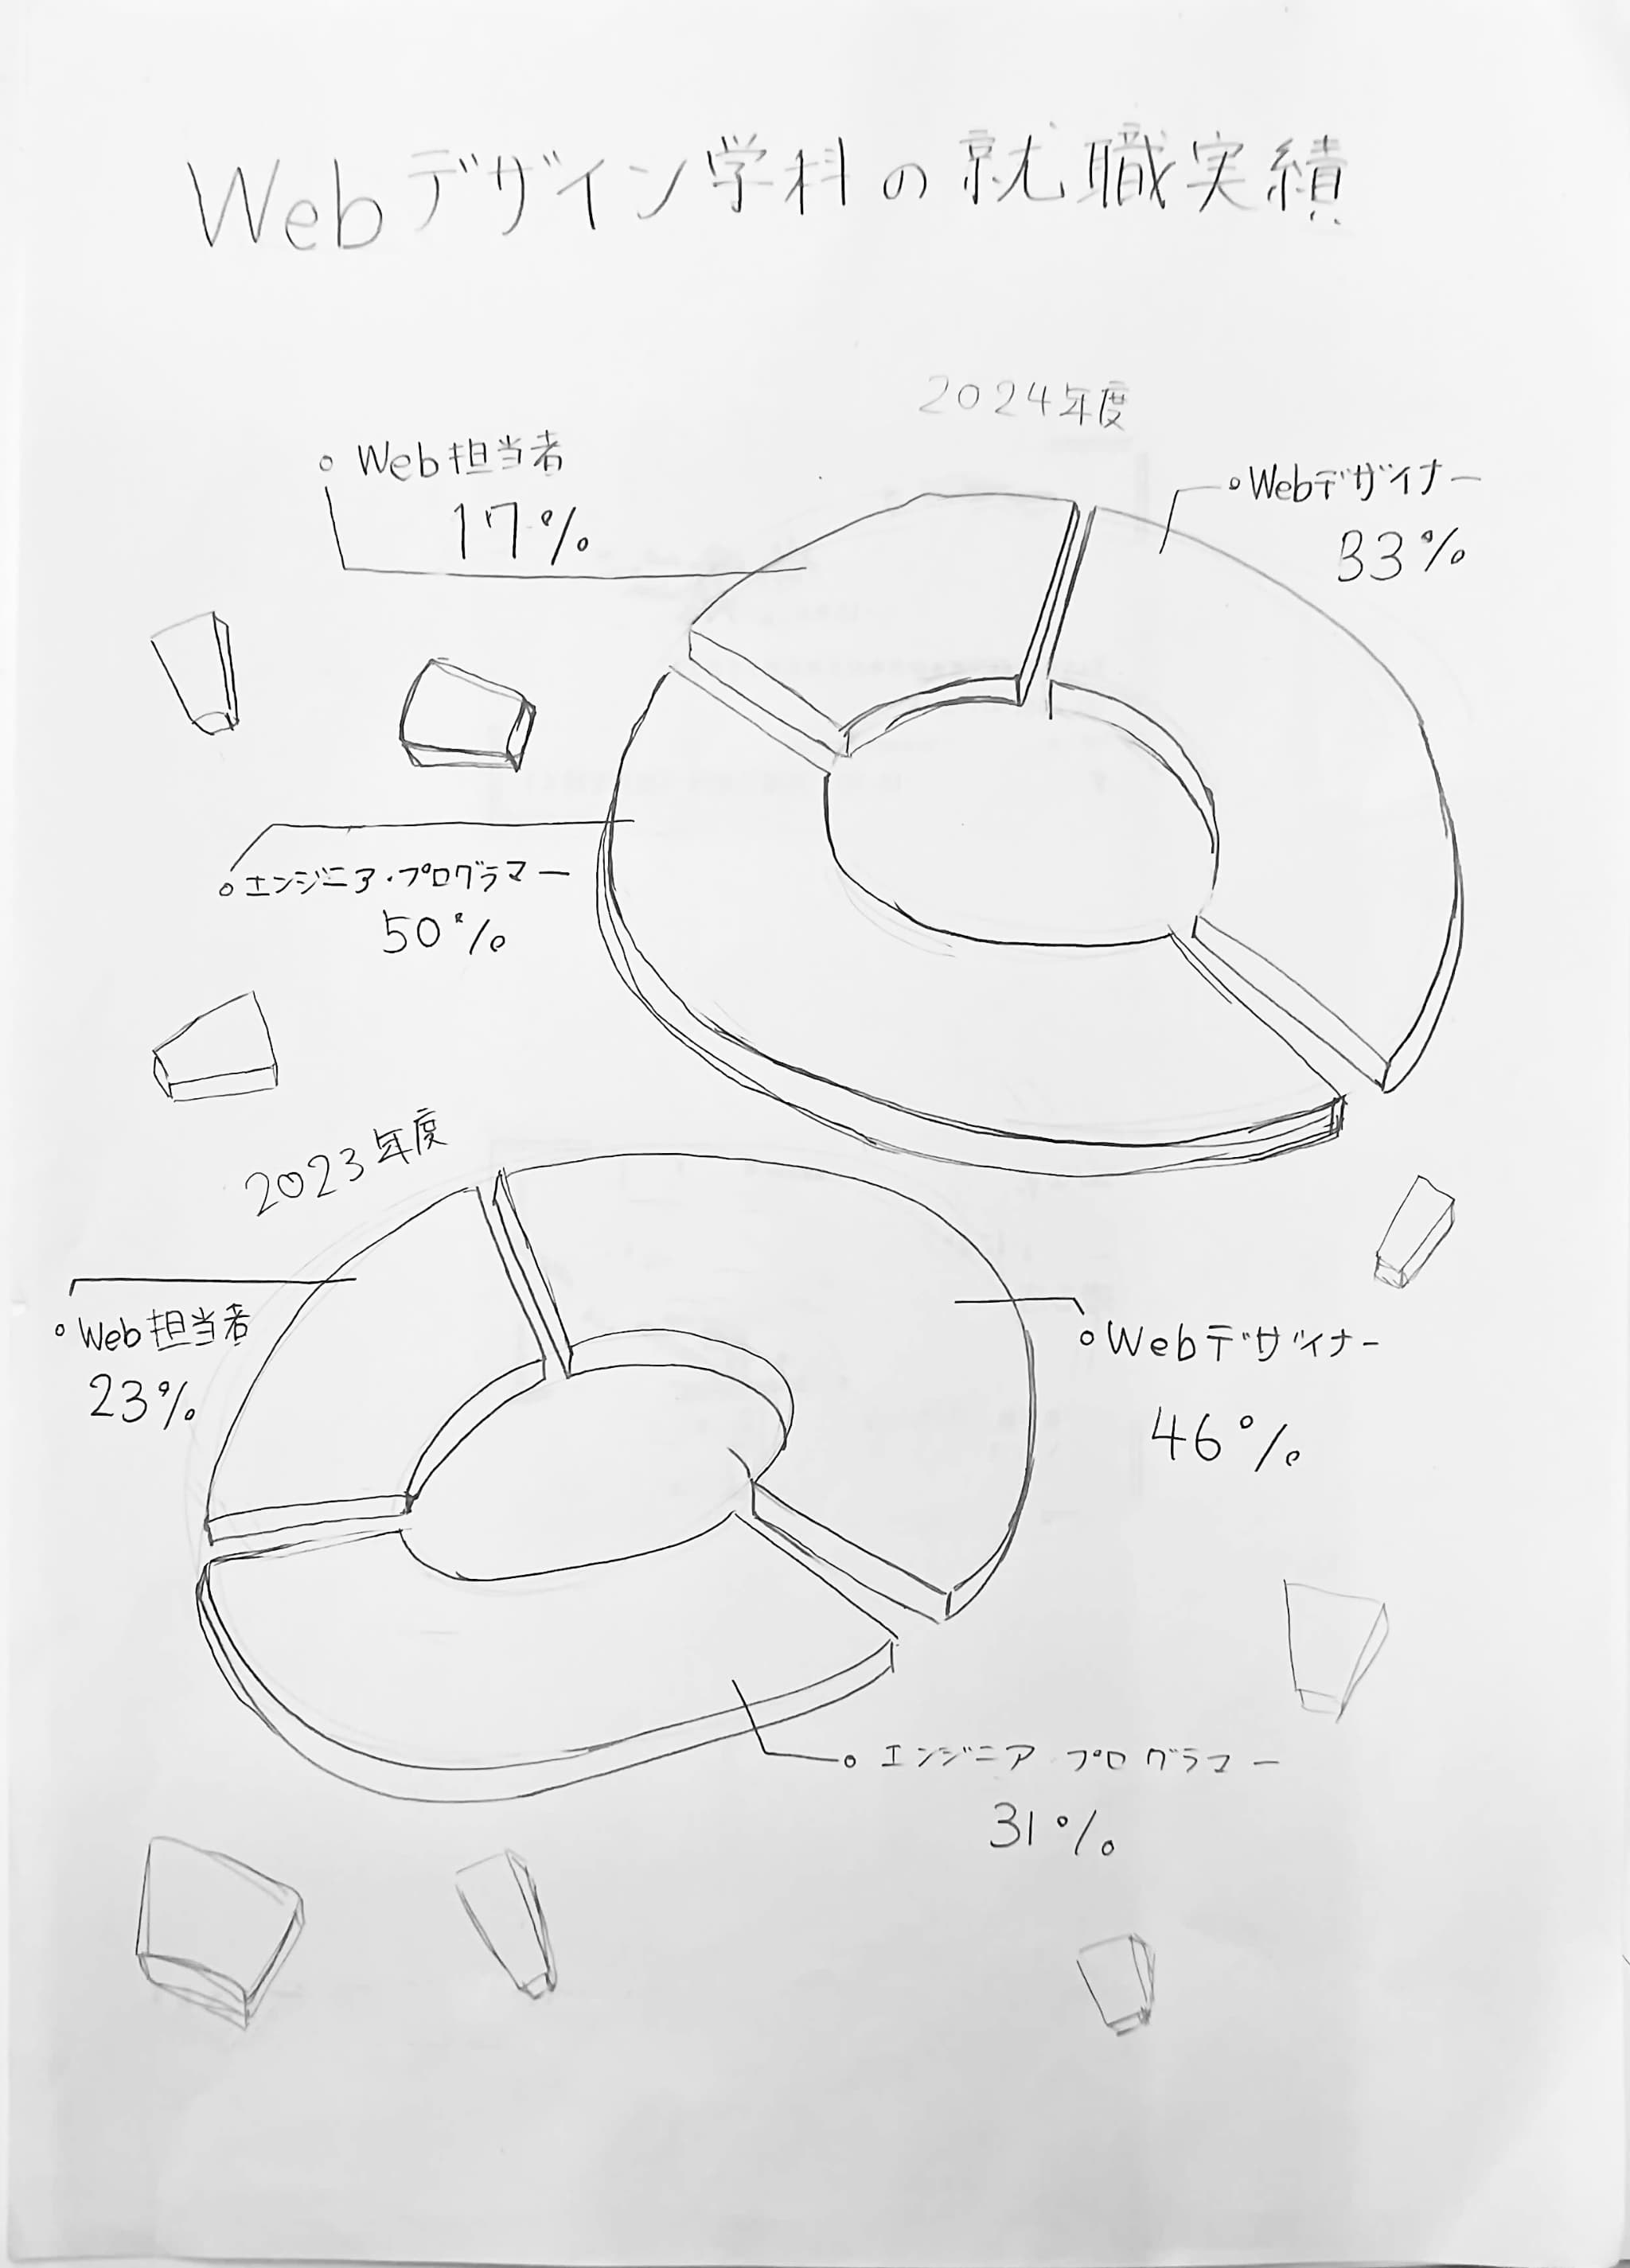 Webデザイン学科の就職実績
2024年度
Web担当者
17%
Webデザイナー
33%
エンジニア・プログラマー
50%
2023年度
Web担当者
23%
Webデザイナー
46%
エンジニア プログラマー
31%